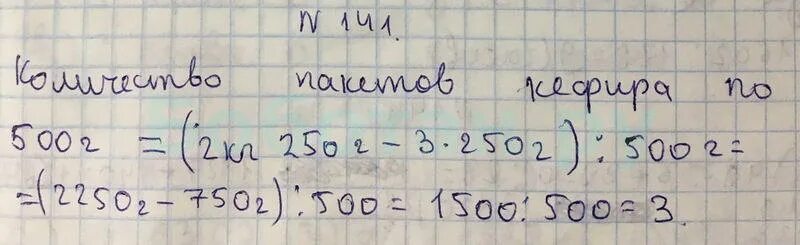 N 141.
Количество пакетов кефира по
500г = (2кг 250г - 3·250г) : 500г =
=(2250г - 750г) : 500 = 1500 : 500 = 3.